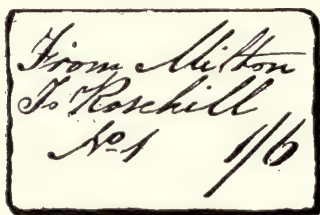 From Milton
To Rosehill
No. 1 1/6